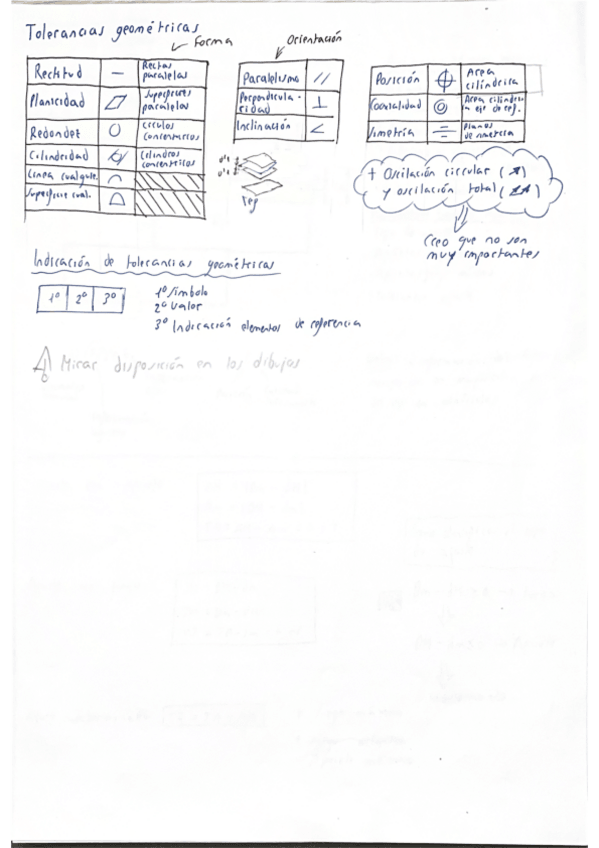 Tolerancias geométricas
Forma
Orientación
Rectitud — Rectas paralelas
Planicidad Superficies paralelas
Redondez Círculos concentricos
Cilindricidad Cilindros concentricos
Linea cualquie.
Superficie cual.
Paralelismo //
Perpendicularidad ⊥
Inclinación ∠
Posición Area cilíndrica
Coaxialidad Area cilíndrica
Simetría Planos de simetría
Ref
+ Oscilación circular (↗)
y oscilación total (↗↗)
Creo que no son
muy importantes
Indicación de tolerancias geométricas
1º 2º 3º
1º Símbolo
2º Valor
3º Indicación elementos de referencia
Mirar disposición en los dibujos